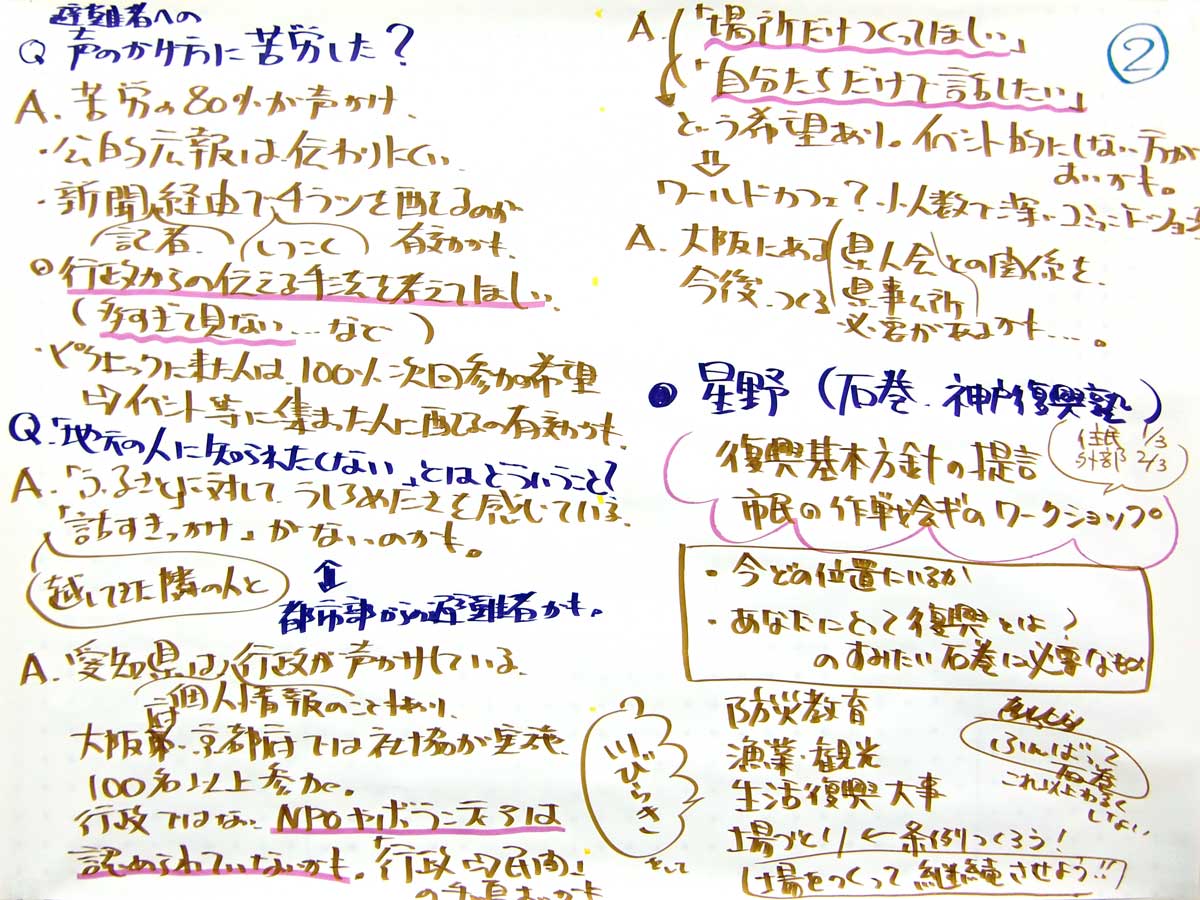 避難者への
Q 声のかけ方に苦労した?
A. 苦労の80%が声かけ、
・公的広報は伝わりにくい
・新聞経由でチラシを配るのが
記者、 しつこく 有効かも。
行政からの伝える手法を考えてほしい。
(多すぎて見ない…など)
・ピクニックに来た人は、100%次回参加希望
⇨イベント等に集まった人に配るの有効かも。
Q.「地元の人に知られたくない」とはどういうこと?
A.「ふるさと」に対して、うしろめたさを感じている。
「話すきっかけ」がないのかも。
越してきた隣の人と
⇕
都市部からの避難者かも。
A. 愛知県は、行政が声かけしている。
個人情報のこともあり、
大阪府・京都府では社協が実施
100名以上参加。
行政ではない NPOやボランティアは
認められていないかも。「行政⇨民間」
②
A.「場所だけつくってほしい」
「自分たちだけで話したい」
という希望あり。イベント的にしない方が
よいかも。
⇩
ワールドカフェ?小人数で深いコミュニケーション
A. 大阪にある 県人会 との関係を
今後、つくる 県事ム所
必要があるかも…。
● 星野(石巻、神戸復興塾)
復興基本方針の提言
住民 1/3
外部 2/3
市民の作戦会ギのワークショップ。
・今どの位置にいるか
・あなたにとって復興とは?
のすみたい石巻に必要なもの
防災教育
漁業・観光
生活復興大事
場づくり ← 条例つくろう!
場をつくって継続させよう!!
ふんばって
石巻
これ以上わるく
しない
川びらき
そして